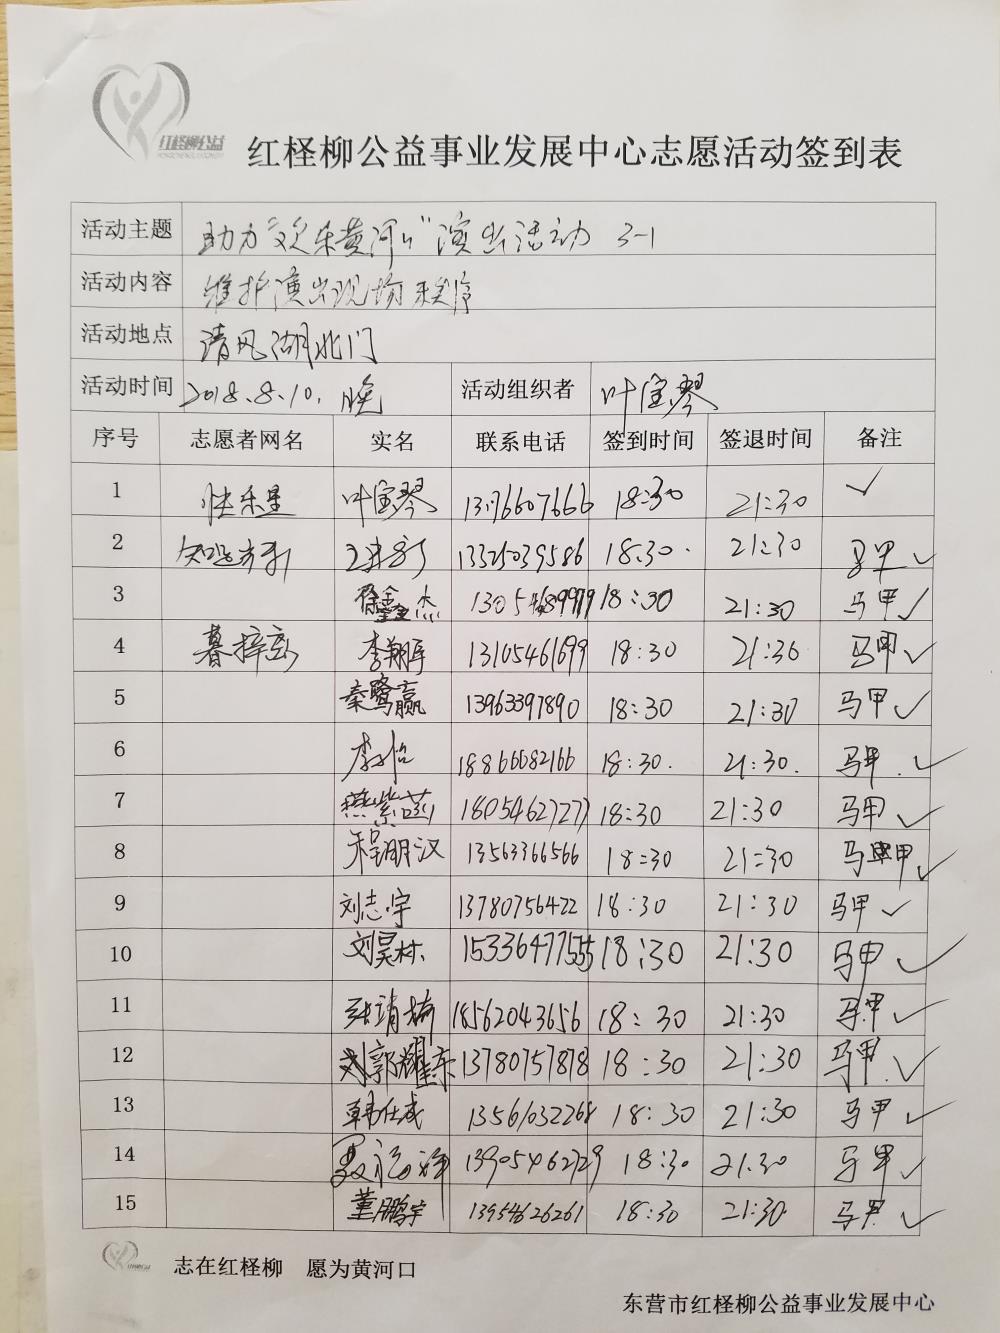 红柽柳公益
红柽柳公益事业发展中心志愿活动签到表
活动主题 助力"欢乐黄河口"演出活动 3-1
活动内容 维护演出现场秩序
活动地点 清风湖北门
活动时间 2018.8.10. 晚 活动组织者 叶宝琴
序号 志愿者网名 实名 联系电话 签到时间 签退时间 备注
1 快乐星 叶宝琴 13176607666 18:30 21:30 ✓
2 13325039586 18:30 21:30 马甲 ✓
3 徐鑫杰 18:30 21:30 马甲 ✓
4 暮梓玄 李翔宇 13105461699 18:30 21:30 马甲 ✓
5 秦鹭赢 13963397890 18:30 21:30 马甲 ✓
6 李怡 18866682166 18:30. 21:30. 马甲. ✓
7 燕紫菡 18054627277 18:30 21:30 马甲 ✓
8 朱明汉 13563366566 18:30 21:30 马甲 ✓
9 刘志宇 13780756422 18:30 21:30 马甲 ✓
10 刘昊栋 15336477555 18:30 21:30 马甲 ✓
11 张靖楠 18562043656 18:30 21:30 马甲 ✓
12 刘郭耀东 13780757878 18:30 21:30 马甲. ✓
13 韩仕成 13561032268 18:30 21:30 马甲 ✓
14 聂福祥 13905462729 18:30 21:30 马甲 ✓
15 董鹏宇 13954626261 18:30 21:30 马甲 ✓
志在红柽柳 愿为黄河口
东营市红柽柳公益事业发展中心